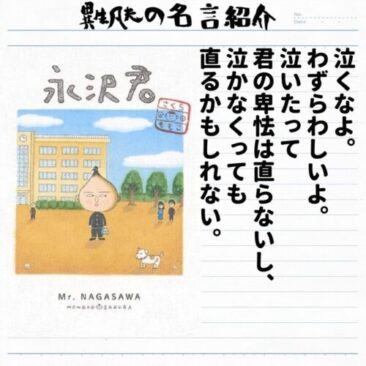 異生凡夫の名言紹介
No.
Date
泣くなよ。
わずらわしいよ。
泣いたって
君の卑怯は直らないし、
泣かなくっても
直るかもしれない。
永沢君
さくら
ももこ
Mr. NAGASAWA
MOMOKO SAKURA